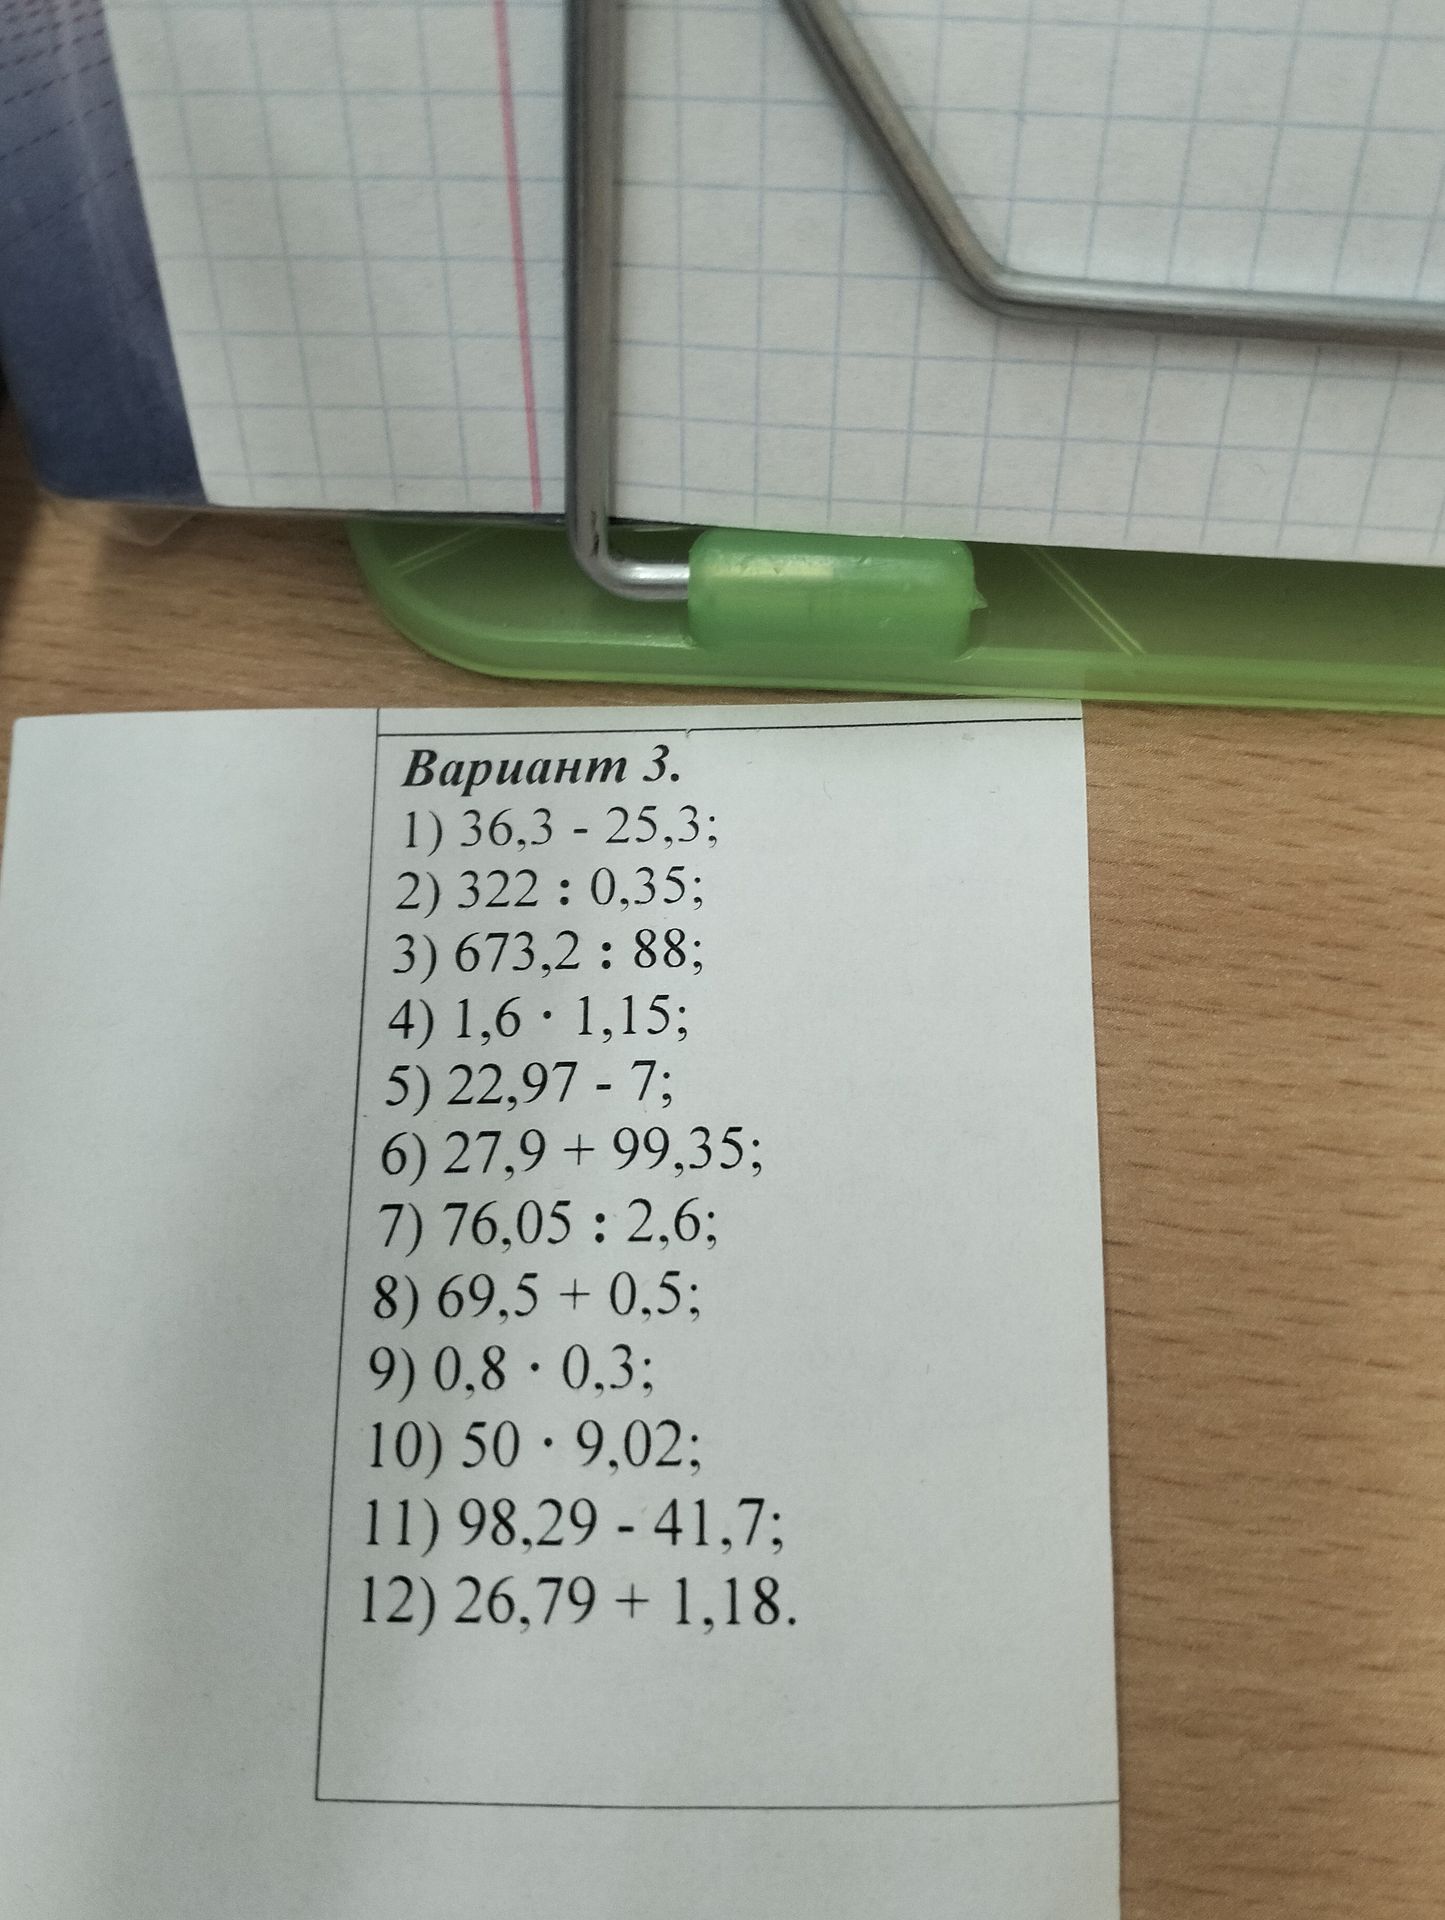 Вариант 3.
1) 36,3 - 25,3;
2) 322 : 0,35;
3) 673,2 : 88;
4) 1,6 · 1,15;
5) 22,97 - 7;
6) 27,9 + 99,35;
7) 76,05 : 2,6;
8) 69,5 + 0,5;
9) 0,8 · 0,3;
10) 50 · 9,02;
11) 98,29 - 41,7;
12) 26,79 + 1,18.